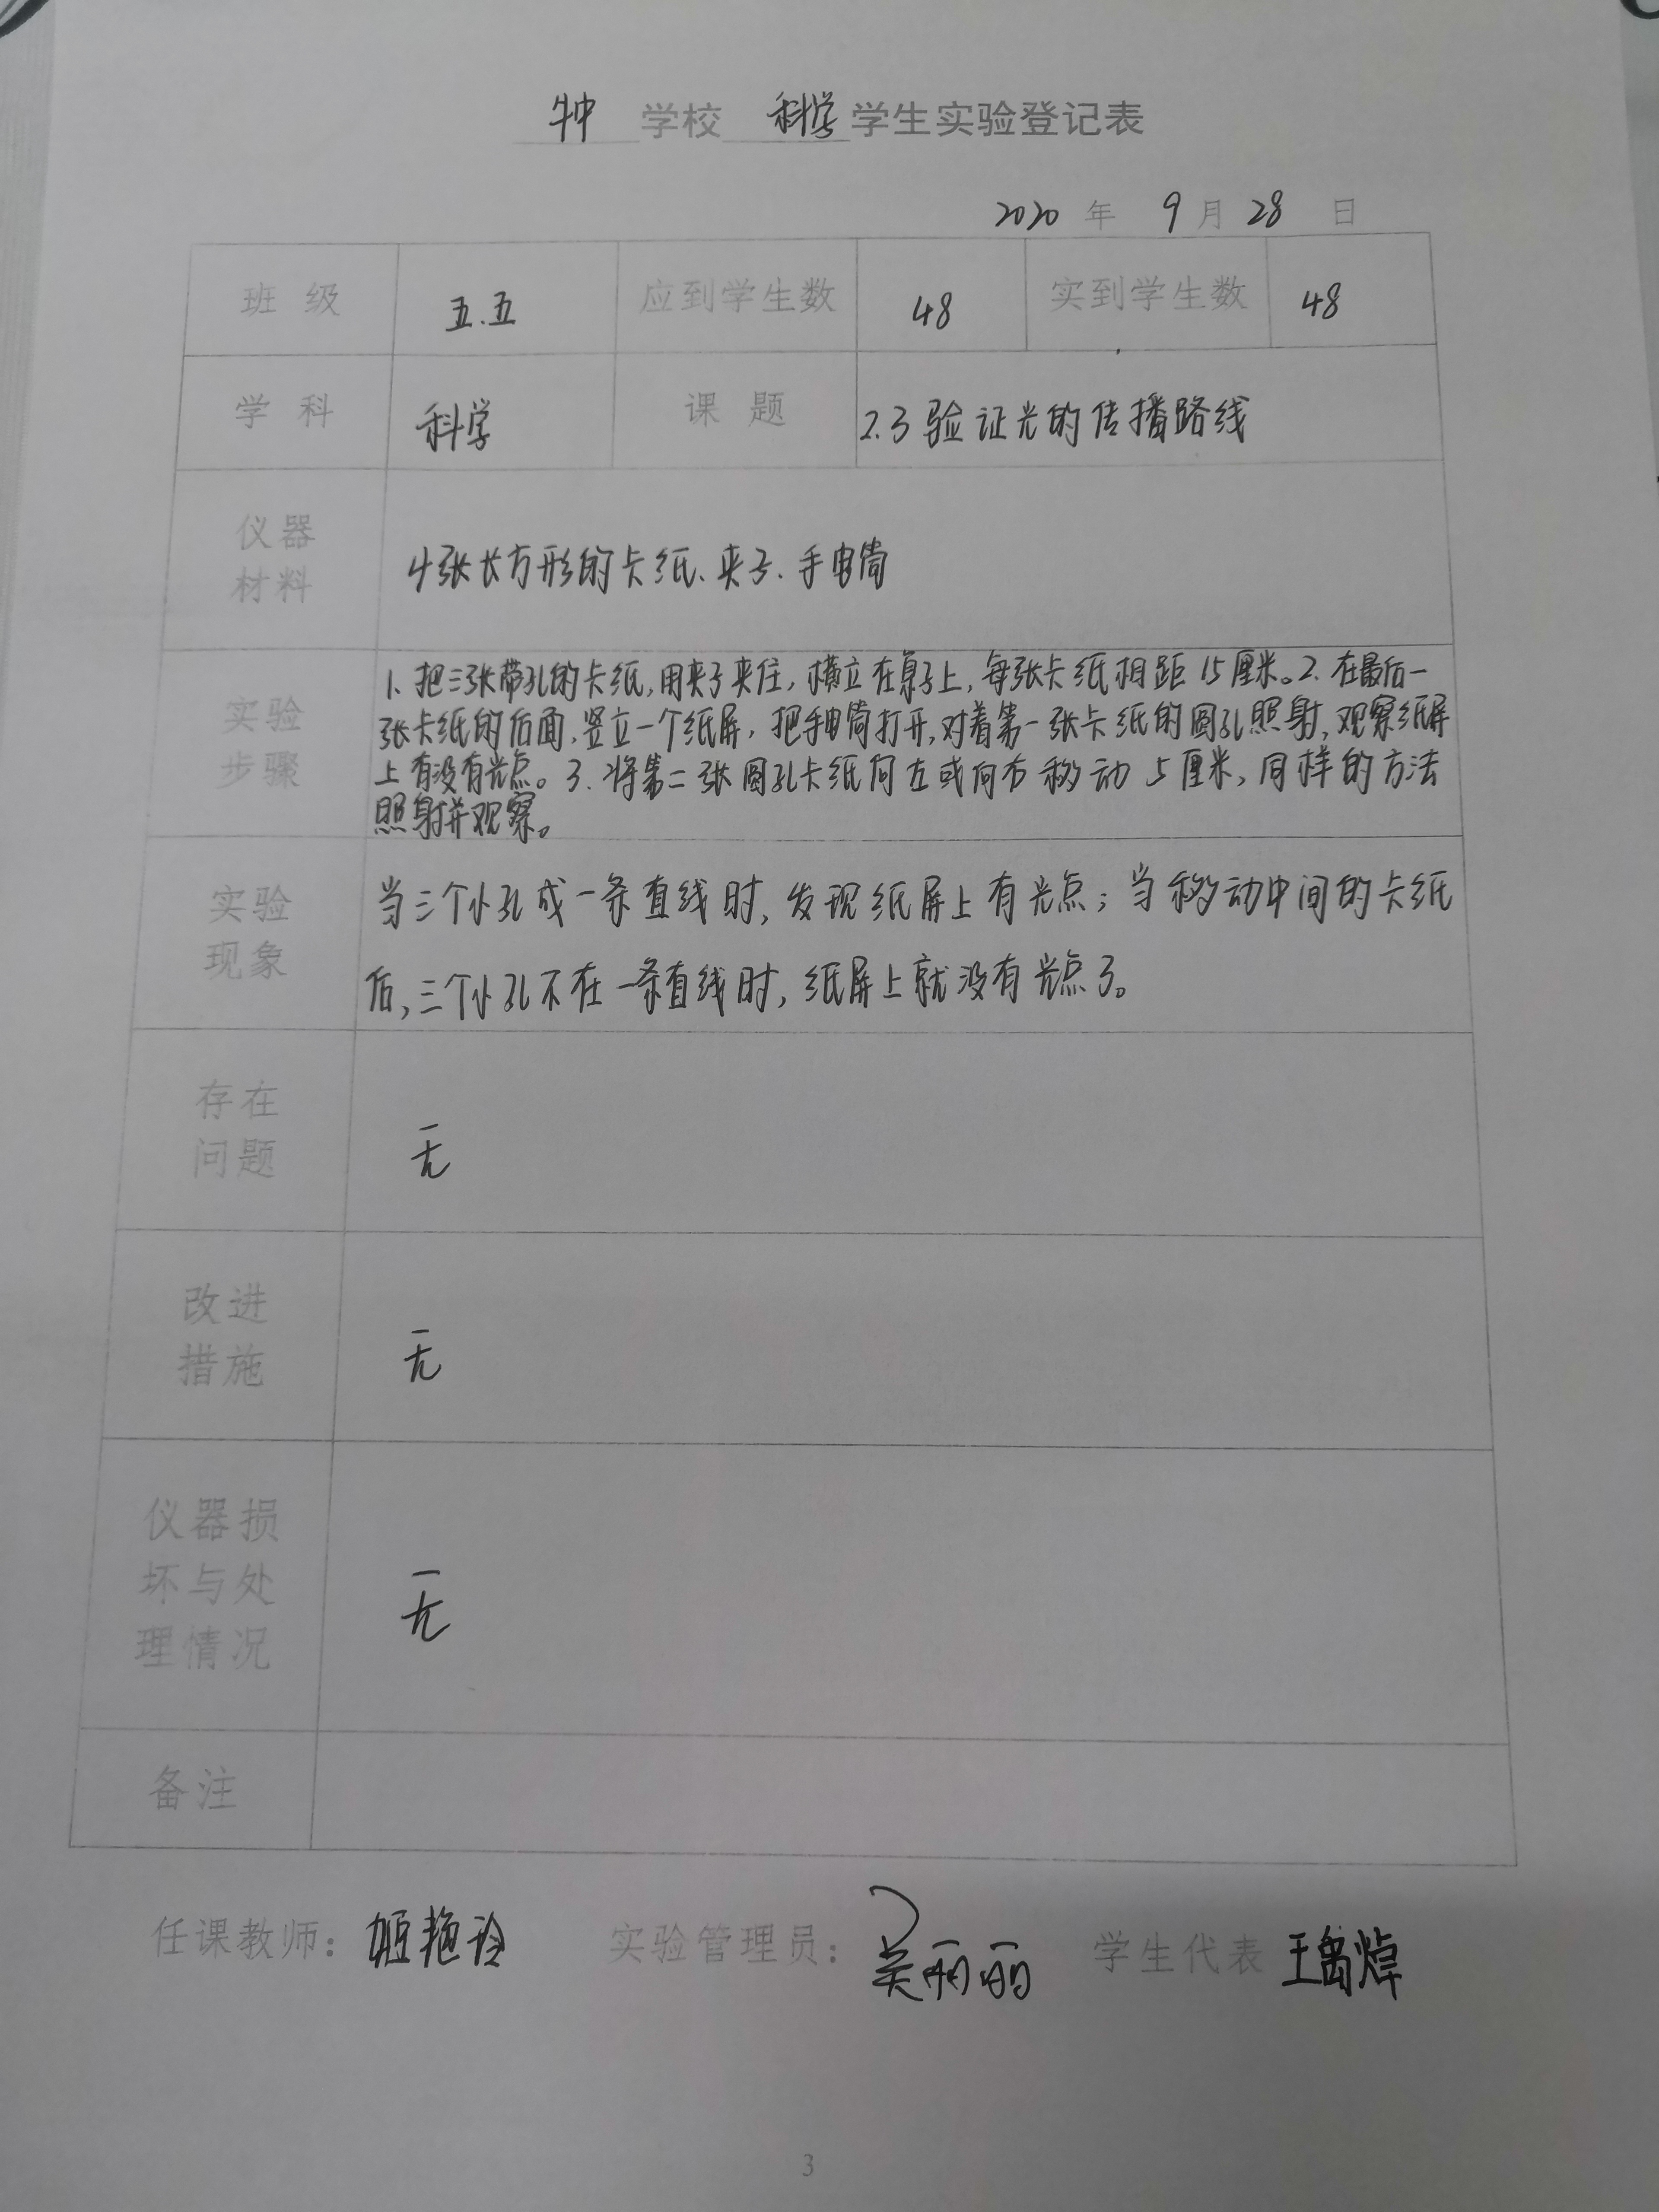 学校 科学 学生实验登记表
2020 年 9 月 28 日
班 级 五.五 应到学生数 48 实到学生数 48
学 科 科学 课 题 2.3验证光的传播路线
仪器
材料
4张长方形的卡纸、夹子、手电筒
实验
步骤
1、把三张带孔的卡纸,用夹子夹住,横立在桌子上,每张卡纸相距15厘米。2.在最后一
张卡纸的后面,竖立一个纸屏,把手电筒打开,对着第一张卡纸的圆孔照射,观察纸屏
上有没有光点。3.将第二张圆孔卡纸向左或向右移动5厘米,同样的方法
照射并观察。
实验
现象
当三个小孔成一条直线时,发现纸屏上有光点;当移动中间的卡纸
后,三个小孔不在一条直线时,纸屏上就没有光点了。
存在
问题
无
改进
措施
无
仪器损
坏与处
理情况
无
备注
任课教师: 姬艳玲 实验管理员: 吴丽丽 学生代表 王禹焯
3